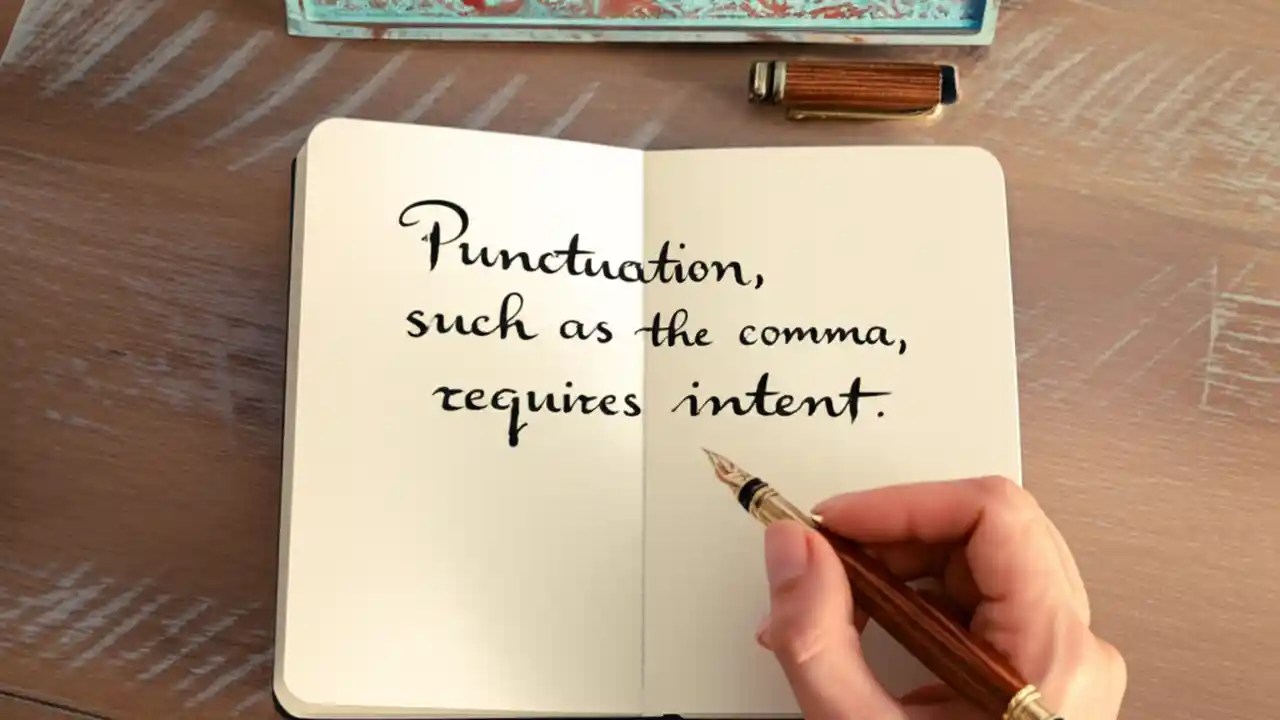 Punctuation,
such as the comma,
requires intent.